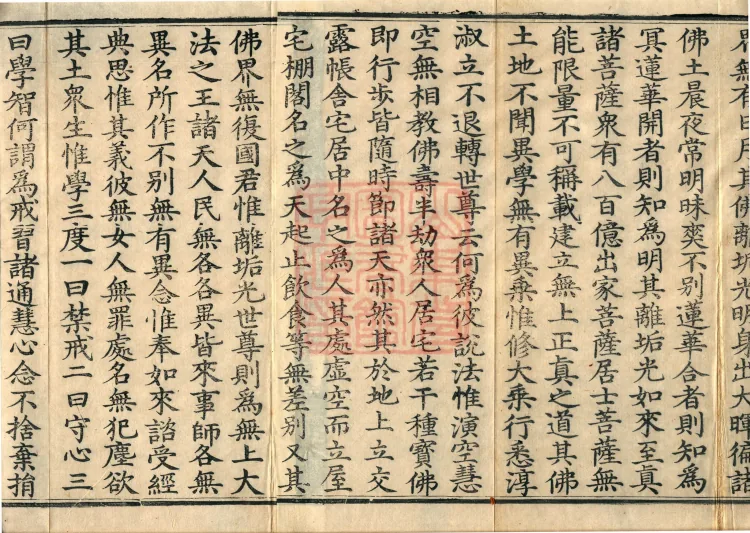 界無有日月其佛離垢光明身出大暉徧諸
佛土晨夜常明昧爽不別蓮華合者則知爲
冥蓮華開者則知爲明其離垢光如來至眞
諸菩薩衆有八百億出家菩薩居士菩薩無
能限量不可稱載建立無上正眞之道其佛
土地不聞異學無有異乘惟修大乘行悉淳
淑立不退轉世尊云何爲彼說法惟演空慧
空無相教佛壽半劫衆人居宅若干種寶佛
即行步皆隨時節諸天亦然其於地上立交
露帳舍宅居中名之爲人其處虛空而立屋
宅棚閣名之爲天起止飲食等無差別又其
佛界無復國君惟離垢光世尊則爲無上大
法之王諸天人民無各各異皆來事師各無
異名所作不別無有異念惟奉如來諮受經
典思惟其義彼無女人無罪處名無犯塵欲
其土衆生惟學三度一曰禁戒二曰守心三
曰學智何謂爲戒習諸通慧心念不捨棄捐